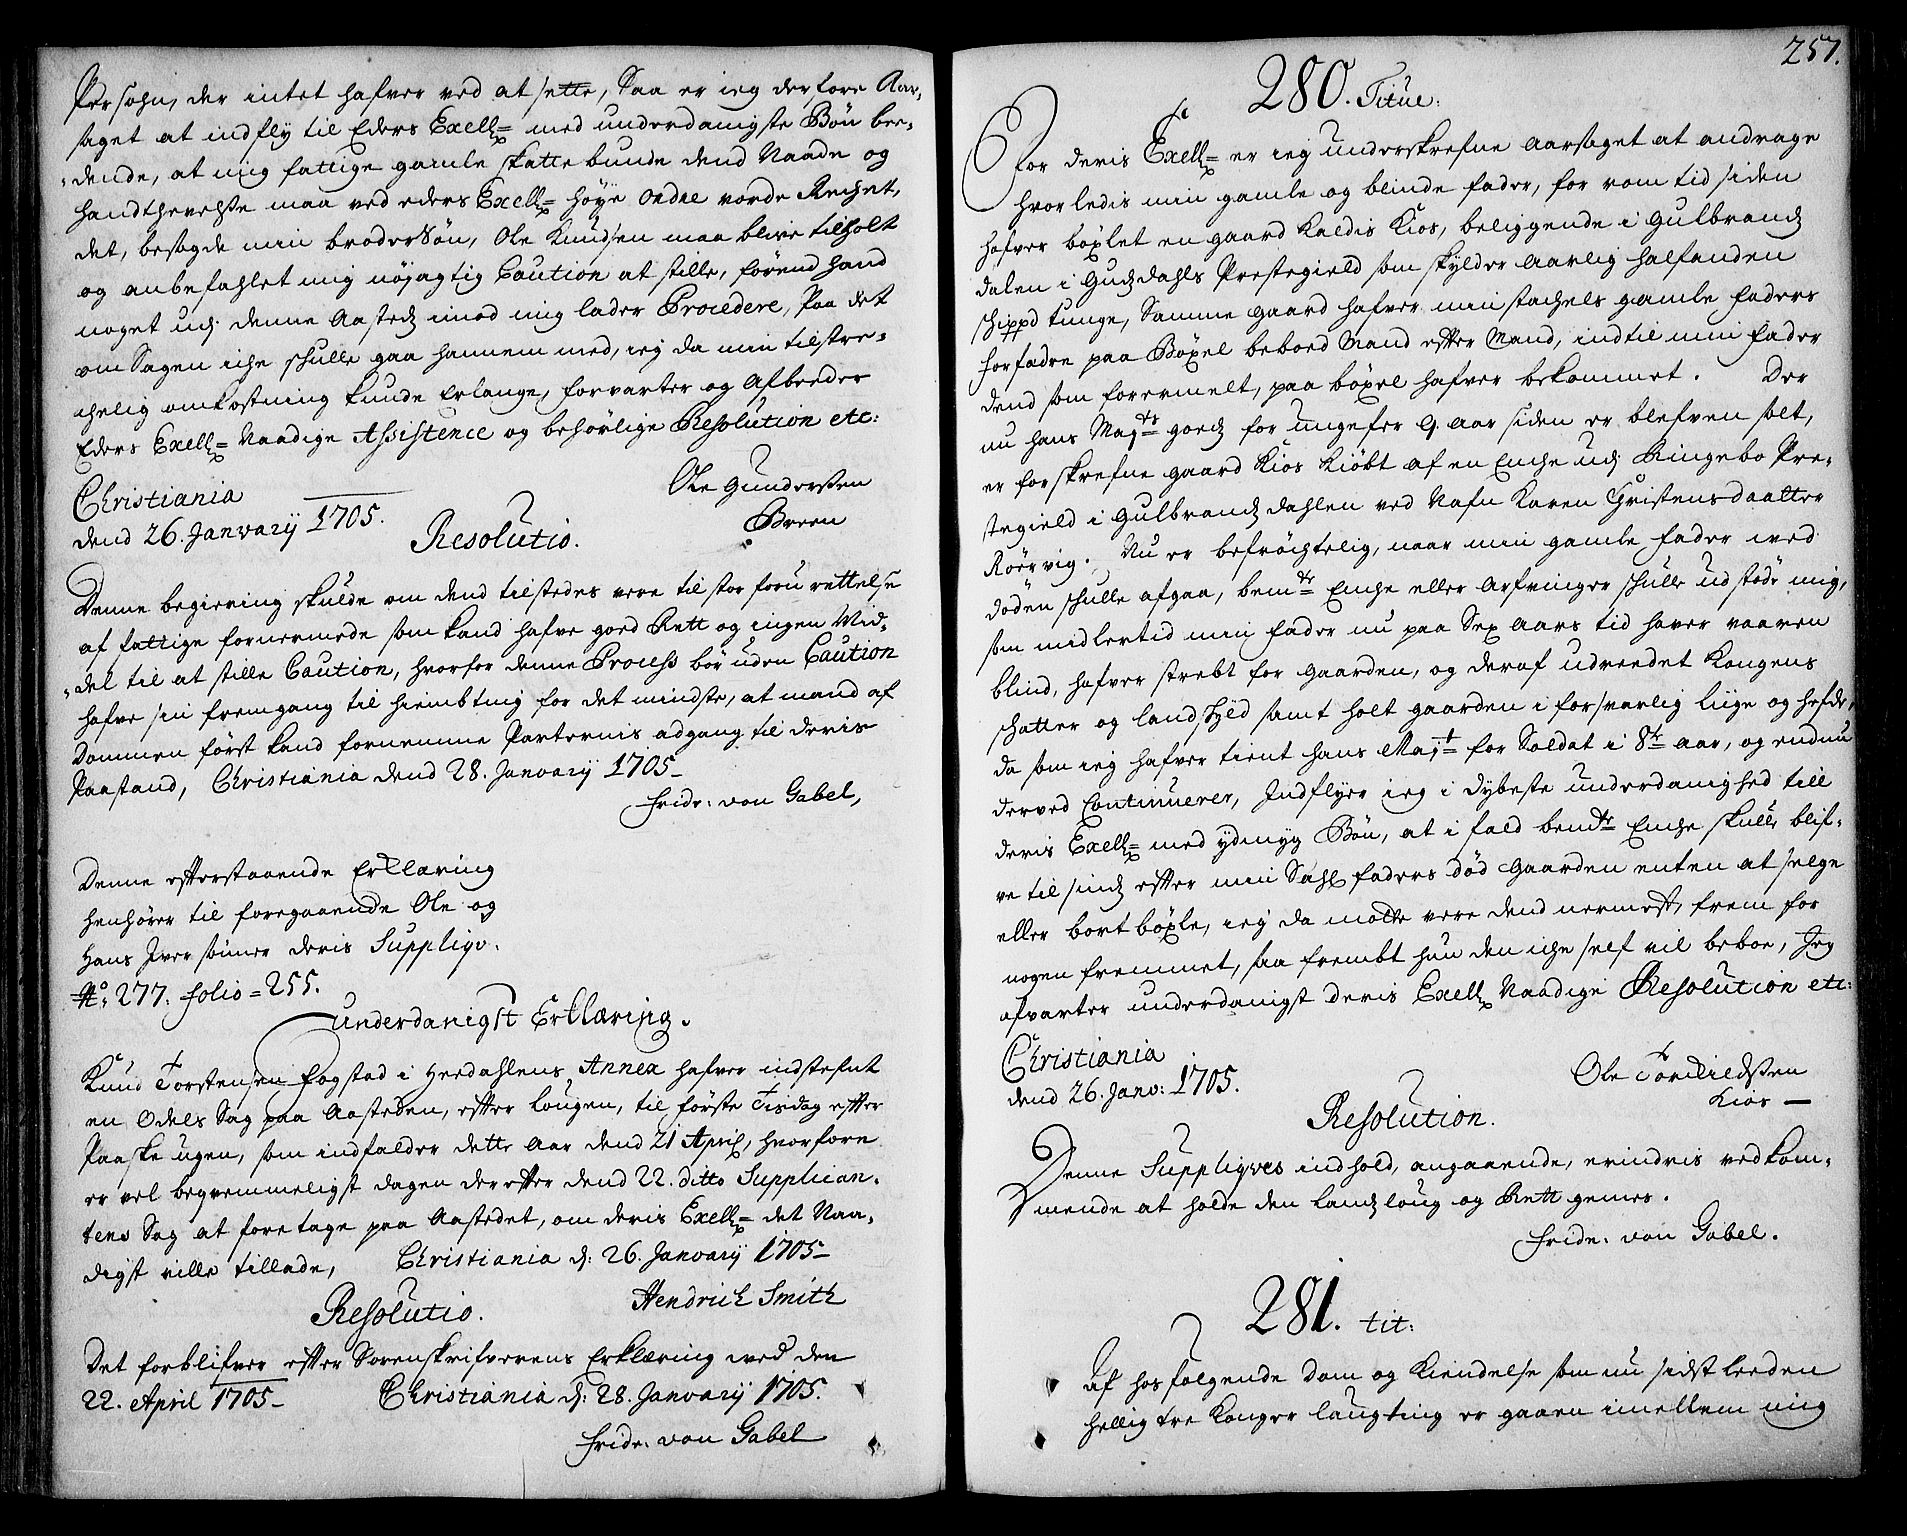 Persohn, der intet hafver ved at sette, Saa er ieg derfore Aar,
saget at indfly til Eders Excell= med underdanigste Bön bee,
,dende, at mig fattige gamle skatte bunde dend Naade og
handthevelsse maa ved eders Excell= höye Ordre vorde Rechet,
det, besagde min broder Sön, Ole Knudsen maa blive tilholt
og anbefahlet mig nöjagtig Caution at stille, förend hand
noget udj denne Aasteds imod mig lader Procedere, Paa det
om Sagen iche schulle gaa hannem med, ieg da min tilstre,
chelig omkostning kunde Erlange, forvarter og Afbeeder
Eders Excell= Naadige Assistence og behörlige Resolution etc:
Christiania
dend 26. Janvarij 1705.
Ole Gunderssen
Breen
Resolutio.
Denne begiering skulde om dend tilstedes vere til stor foru rettelse
af fattige fornermede som kand hafve goed Rett og ingen Mid,
,del til at stille Caution, hvorfor denne Process bör uden Caution
hafve sin fremgang til hiembting for det mindste, at mand af
Dommen först kand fornemme Parternis adgang til deris
Paastand, Christiania dend 28. Janvarij 1705-
Fridr: von Gabel,
Denne efterstaaende Erklæring
henhörer til foregaaende Ole og
Hans Iver sönner deris Suppliqv:
No: 277. folio = 255.
Underdanigst Erklæring.
Knud Torstensen Fogstad i Heedahlens Annex hafver indstefnt
en Odels Sag paa Aasteden, efter Lougen, til förste Tisdag efter
Paaske ugen, som indfalder dette Aar dend 21 April, hvorfore
er vel beqvemmeligst dagen der efter dend 22. ditto Supplican,
tens Sag at foretage paa Aastedet, om deris Excell= det Naa,
digst ville tillade, Christiania d: 26. Janvarij 1705-
Hendrich Smith
Resolutio.
Det forblifver efter Sorenskrifverens Erklæring med den
22. April 1705- Christiania d: 28. Janvarij 1705.
Fridr: von Gabel
257.
280. Titul:
For deris Excell= er ieg underskrefne aarsaget at andrage
hvorledis min gamle og blinde fader, for rom tid siden
hafver böxlet en gaard kaldis Kios, beliggende i Gulbrands
dalen i Gudsdahls Prestegield som skylder Aarlig halfanden
schippd tunge, Samme gaard hafver min stachels gamle faders
forfadre paa Böxel beboed Mand efter Mand, indtil min fader
dend som forermelt, paa böxel hafver bekommet. Der
nu hans Majts goeds for ungefer 9. aar siden er blefven solt,
er forskrefne gaard Kios kiöbt af en Enche udj Ringebo Pre,
stegield i Gulbrands dahlen ved Nafn Karen Christensdaatter
Röervig. Nu er befröchtelig, naar min gamle fader ved
döden schulle afgaa, bemte Enche eller Arfvinger schulle ud stöde mig,
som midlertid min fader nu paa Sex aars tid haver vaaren
blind, hafver strebt for gaarden, og deraf udreedet Kongens
schatter og landskyld samt holt gaarden i forsvarlig liige og hefde,
da som ieg hafver tient hans Majt for Soldat i 8te aar, og endnu
derved Continuerer, Indflyer ieg i dybeste underdanighed till
deris Excell= med ydmyg Bön, at i fald bemte Enche skulle blif,
ve til sinds efter min Sahl faders död Gaarden enten at selge
eller bort böxle, ieg da motte vere dend nermest, frem for
nogen fremmet, saa frembt hun den iche self vil beboe, Jeg
afvarter underdanigst deris Excell Naadige Resolution etc:
Christiania
dend 26. Janv: 1705.
Ole Torckildssen
Kios -
Resolution.
Denne Suppliqves indhold, angaaende, erindris vedkom,
mende at holde den Lands loug og Rett gemes.
Fridr: von Gabel.
281. tit:
Af hosfölgende dom og Kiendelse som nu sidst leeden
hellig tre Konger laugting er gaaen imellem mig